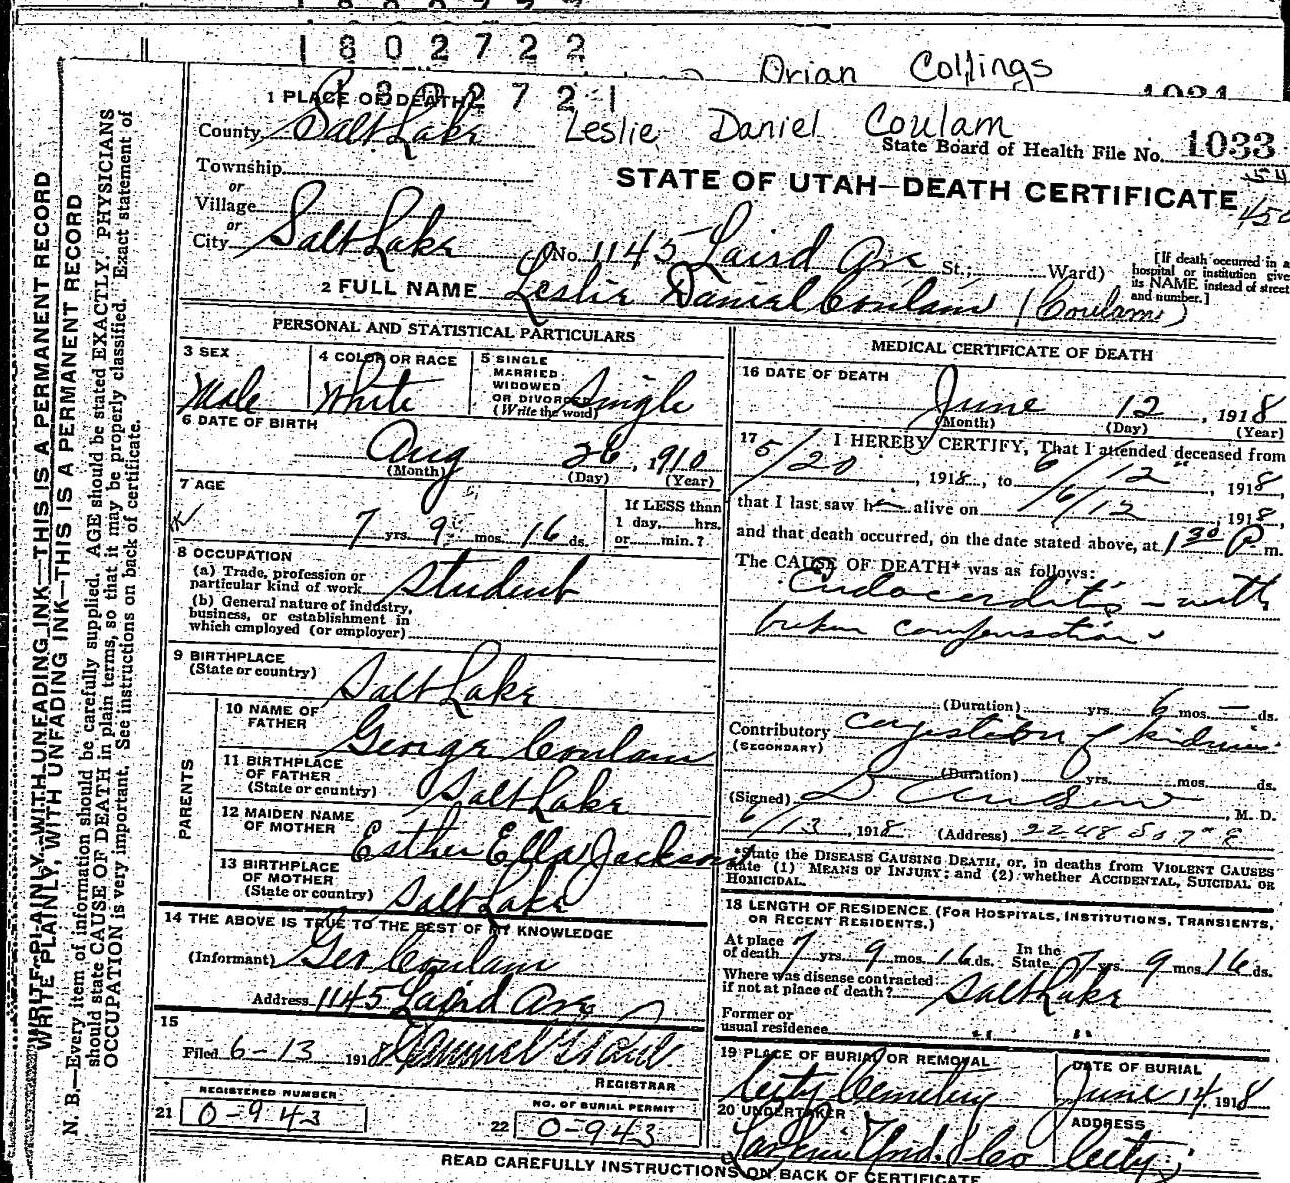 1802722
Orian Collings
1802721
1031
1 PLACE OF DEATH
County Salt Lake
Leslie Daniel Coulam
State Board of Health File No. 1033
Township
or
Village
or
City Salt Lake
STATE OF UTAH—DEATH CERTIFICATE
No. 1145 Laird Ave St.; Ward)
[If death occurred in a hospital or institution give its NAME instead of street and number.]
2 FULL NAME Leslie Daniel Coulam (Coulam)
PERSONAL AND STATISTICAL PARTICULARS
3 SEX Male
4 COLOR OR RACE White
5 SINGLE MARRIED WIDOWED OR DIVORCED (Write the word) Single
6 DATE OF BIRTH
Aug 26, 1910
(Month) (Day) (Year)
7 AGE
7 yrs. 9 mos. 16 ds.
If LESS than 1 day, hrs. or min.?
8 OCCUPATION
(a) Trade, profession or particular kind of work student
(b) General nature of industry, business, or establishment in which employed (or employer)
9 BIRTHPLACE
(State or country) Salt Lake
PARENTS
10 NAME OF FATHER George Coulam
11 BIRTHPLACE OF FATHER (State or country) Salt Lake
12 MAIDEN NAME OF MOTHER Esther Ella Jackson
13 BIRTHPLACE OF MOTHER (State or country) Salt Lake
14 THE ABOVE IS TRUE TO THE BEST OF MY KNOWLEDGE
(Informant) Geo Coulam
Address 1145 Laird Ave
15
Filed 6-13 1918
REGISTRAR
REGISTERED NUMBER
21 0-943
NO. OF BURIAL PERMIT
22 0-943
MEDICAL CERTIFICATE OF DEATH
16 DATE OF DEATH
June 12, 1918
(Month) (Day) (Year)
17 I HEREBY CERTIFY, That I attended deceased from
5/20, 1918, to 6/12, 1918,
that I last saw h alive on 6/12, 1918,
and that death occurred, on the date stated above, at 1 30 P m.
The CAUSE OF DEATH* was as follows:
Endocarditis - with
broken compensation
(Duration) yrs. 6 mos. — ds.
Contributory congestion of kidneys
(SECONDARY)
(Duration) yrs. mos. ds.
(Signed) , M. D.
6/13, 1918 (Address) 2248 So 7" E
*State the DISEASE CAUSING DEATH, or, in deaths from VIOLENT CAUSES
state (1) MEANS OF INJURY; and (2) whether ACCIDENTAL, SUICIDAL OR
HOMICIDAL.
18 LENGTH OF RESIDENCE (FOR HOSPITALS, INSTITUTIONS, TRANSIENTS,
OR RECENT RESIDENTS.)
At place of death 7 yrs. 9 mos. 16 ds. In the State 7 yrs. 9 mos. 16 ds.
Where was disease contracted if not at place of death? Salt Lake
Former or usual residence
19 PLACE OF BURIAL OR REMOVAL
City Cemetery
DATE OF BURIAL
June 14, 1918
20 UNDERTAKER
Larkin Und. Co
ADDRESS
City
READ CAREFULLY INSTRUCTIONS ON BACK OF CERTIFICATE
WRITE PLAINLY, WITH UNFADING INK—THIS IS A PERMANENT RECORD
WRITE PLAINLY, WITH UNFADING INK—THIS IS A PERMANENT RECORD
N. B.—Every item of information should be carefully supplied. AGE should be stated EXACTLY. PHYSICIANS
should state CAUSE OF DEATH in plain terms, so that it may be properly classified. Exact statement of
OCCUPATION is very important. See instructions on back of certificate.